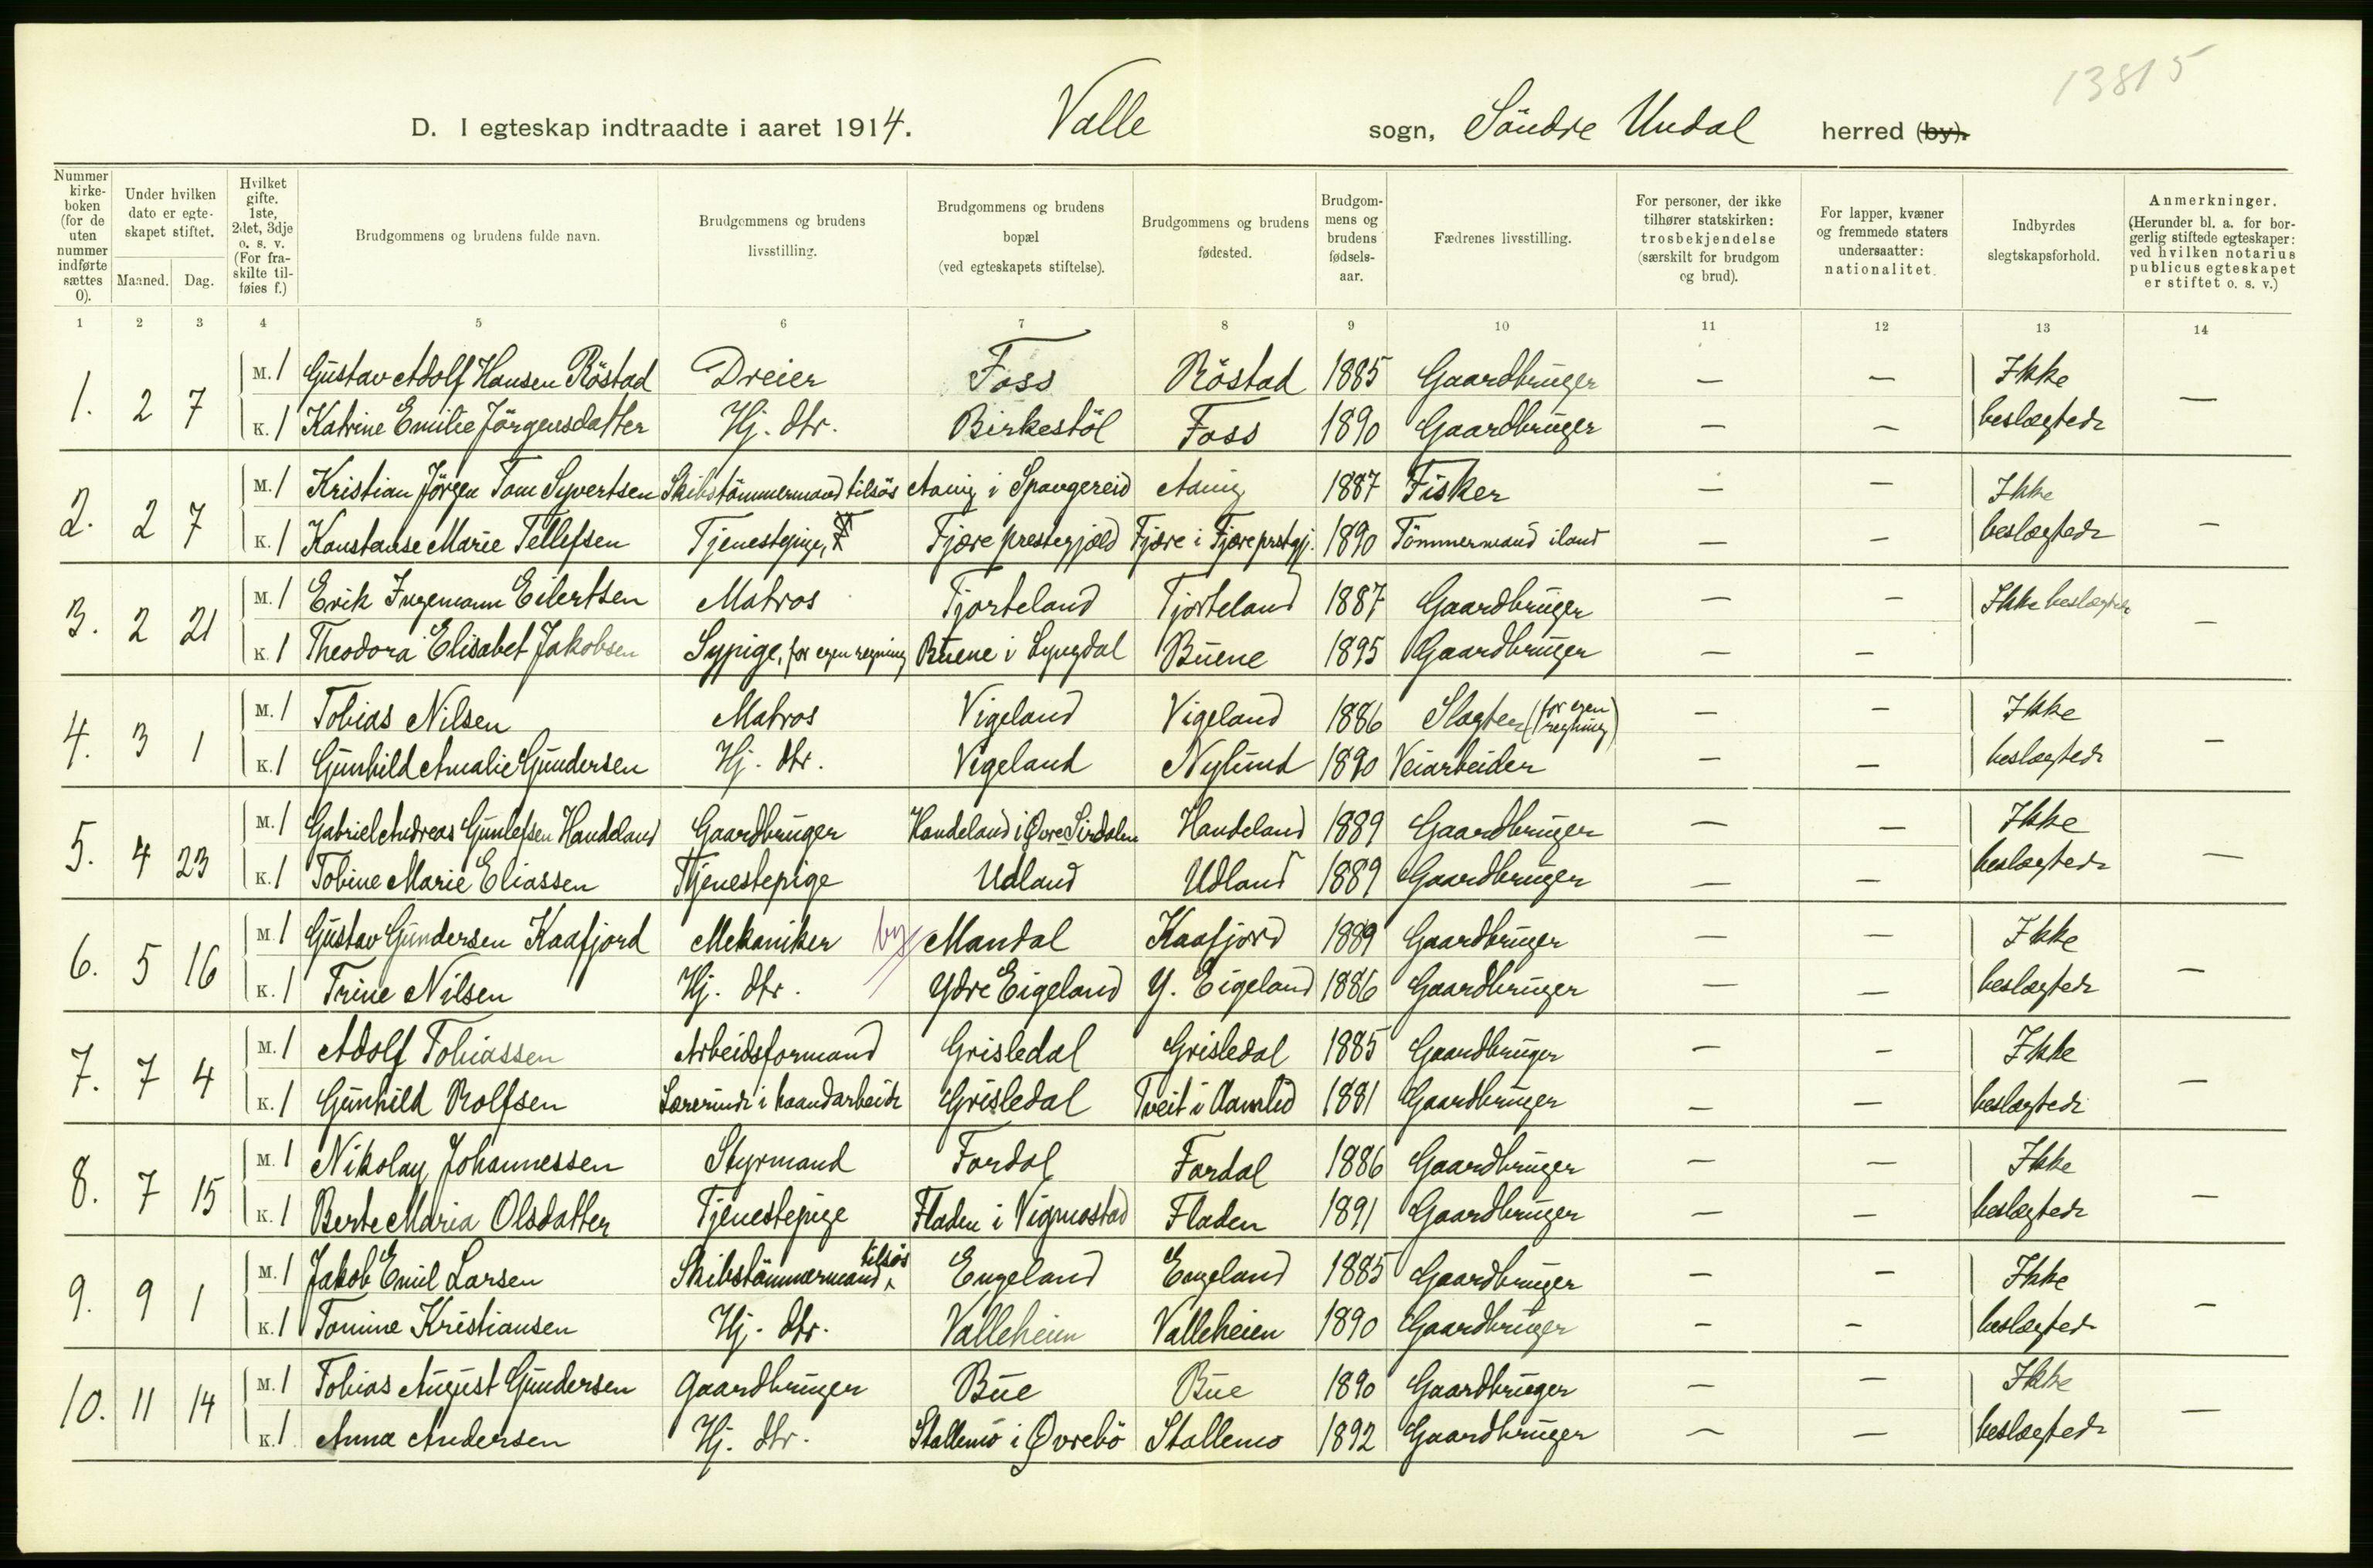 13815
D. I egteskap indtraadte i aaret 1914. Valle sogn, Söndre Undal herred (by).
Nummer kirke-boken (for de uten nummer indførte sættes 0).
Under hvilken dato er egte-skapet stiftet.
Maaned. Dag.
Hvilket gifte. 1ste, 2det, 3dje o. s. v. (For fra-skilte til-føies f.)
Brudgommens og brudens fulde navn.
Brudgommens og brudens livsstilling.
Brudgommens og brudens bopæl (ved egteskapets stiftelse).
Brudgommens og brudens fødested.
Brudgom-mens og brudens fødsels-aar.
Fædrenes livsstilling.
For personer, der ikke tilhører statskirken: trosbekjendelse (særskilt for brudgom og brud).
For lapper, kvæner og fremmede staters undersaatter: nationalitet.
Indbyrdes slegtskapsforhold.
Anmerkninger. (Herunder bl. a. for bor-gerlig stiftede egteskaper: ved hvilken notarius publicus egteskapet er stiftet o. s. v.)
1 2 3 4 5 6 7 8 9 10 11 12 13 14
1. 2 7 M. 1 Gustav Adolf Hansen Röstad Dreier Foss Röstad 1885 Gaardbruger — — Ikke —
K. 1 Katrine Emilie Jörgensdatter Hj. dtr. Birkestöl Foss 1890 Gaardbruger — — beslægtede
2. 2 7 M. 1 Kristian Jörgen Tom Syvertsen Skibstömmermand tilsös Aanig i Spangereid Aanig 1887 Fisker — — Ikke —
K. 1 Konstanse Marie Tellefsen Tjenestepige, Fjære prestegjæld Fjære i Fjære prstgj. 1890 Tömmermand iland — — beslægtede
3. 2 21 M. 1 Erik Ingemann Eilertsen Matros Tjorteland Tjorteland 1887 Gaardbruger — — Ikke beslægtede —
K. 1 Theodora Elisabet Jakobsen Sypige, for egen regning Buene i Lyngdal Buene 1895 Gaardbruger — —
4. 3 1 M. 1 Tobias Nilsen Matros Vigeland Vigeland 1886 Slagter (for egen regning) — — Ikke —
K. 1 Gunhild Amalie Gundersen Hj. dtr. Vigeland Nylund 1890 Veiarbeider — — beslægtede
5. 4 23 M. 1 Gabriel Andreas Gunlefsen Handeland Gaardbruger Handeland i Øvre Sirdalen Handeland 1889 Gaardbruger — — Ikke —
K. 1 Tobine Marie Eliassen Tjenestepige Udland Udland 1889 Gaardbruger — — beslægtede
6. 5 16 M. 1 Gustav Gundersen Kaafjord Mekaniker by Mandal Kaafjord 1889 Gaardbruger — — Ikke —
K. 1 Trine Nilsen Hj. dtr. Ydre Eigeland Y. Eigeland 1886 Gaardbruger — — beslægtede
7. 7 4 M. 1 Adolf Tobiassen Arbeidsformand Grisledal Grisledal 1885 Gaardbruger — — Ikke —
K. 1 Gunhild Rolfsen Lærerinde i haandarbeide Grisledal Tveit i Aamlid 1881 Gaardbruger — — beslægtede
8. 7 15 M. 1 Nikolay Johannessen Styrmand Fardal Fardal 1886 Gaardbruger — — Ikke —
K. 1 Berte Maria Olsdatter Tjenestepige Fladen i Vigmostad Fladen 1891 Gaardbruger — — beslægtede
9. 9 1 M. 1 Jakob Emil Larsen Skibstömmermand tilsös Engeland Engeland 1885 Gaardbruger — — Ikke —
K. 1 Tomine Kristiansen Hj. dtr. Valleheien Valleheien 1890 Gaardbruger — — beslægtede
10. 11 14 M. 1 Tobias August Gundersen Gaardbruger Bue Bue 1890 Gaardbruger — — Ikke —
K. 1 Anna Andersen Hj. dtr. Stallemo i Øvrebö Stallemo 1892 Gaardbruger — — beslægtede